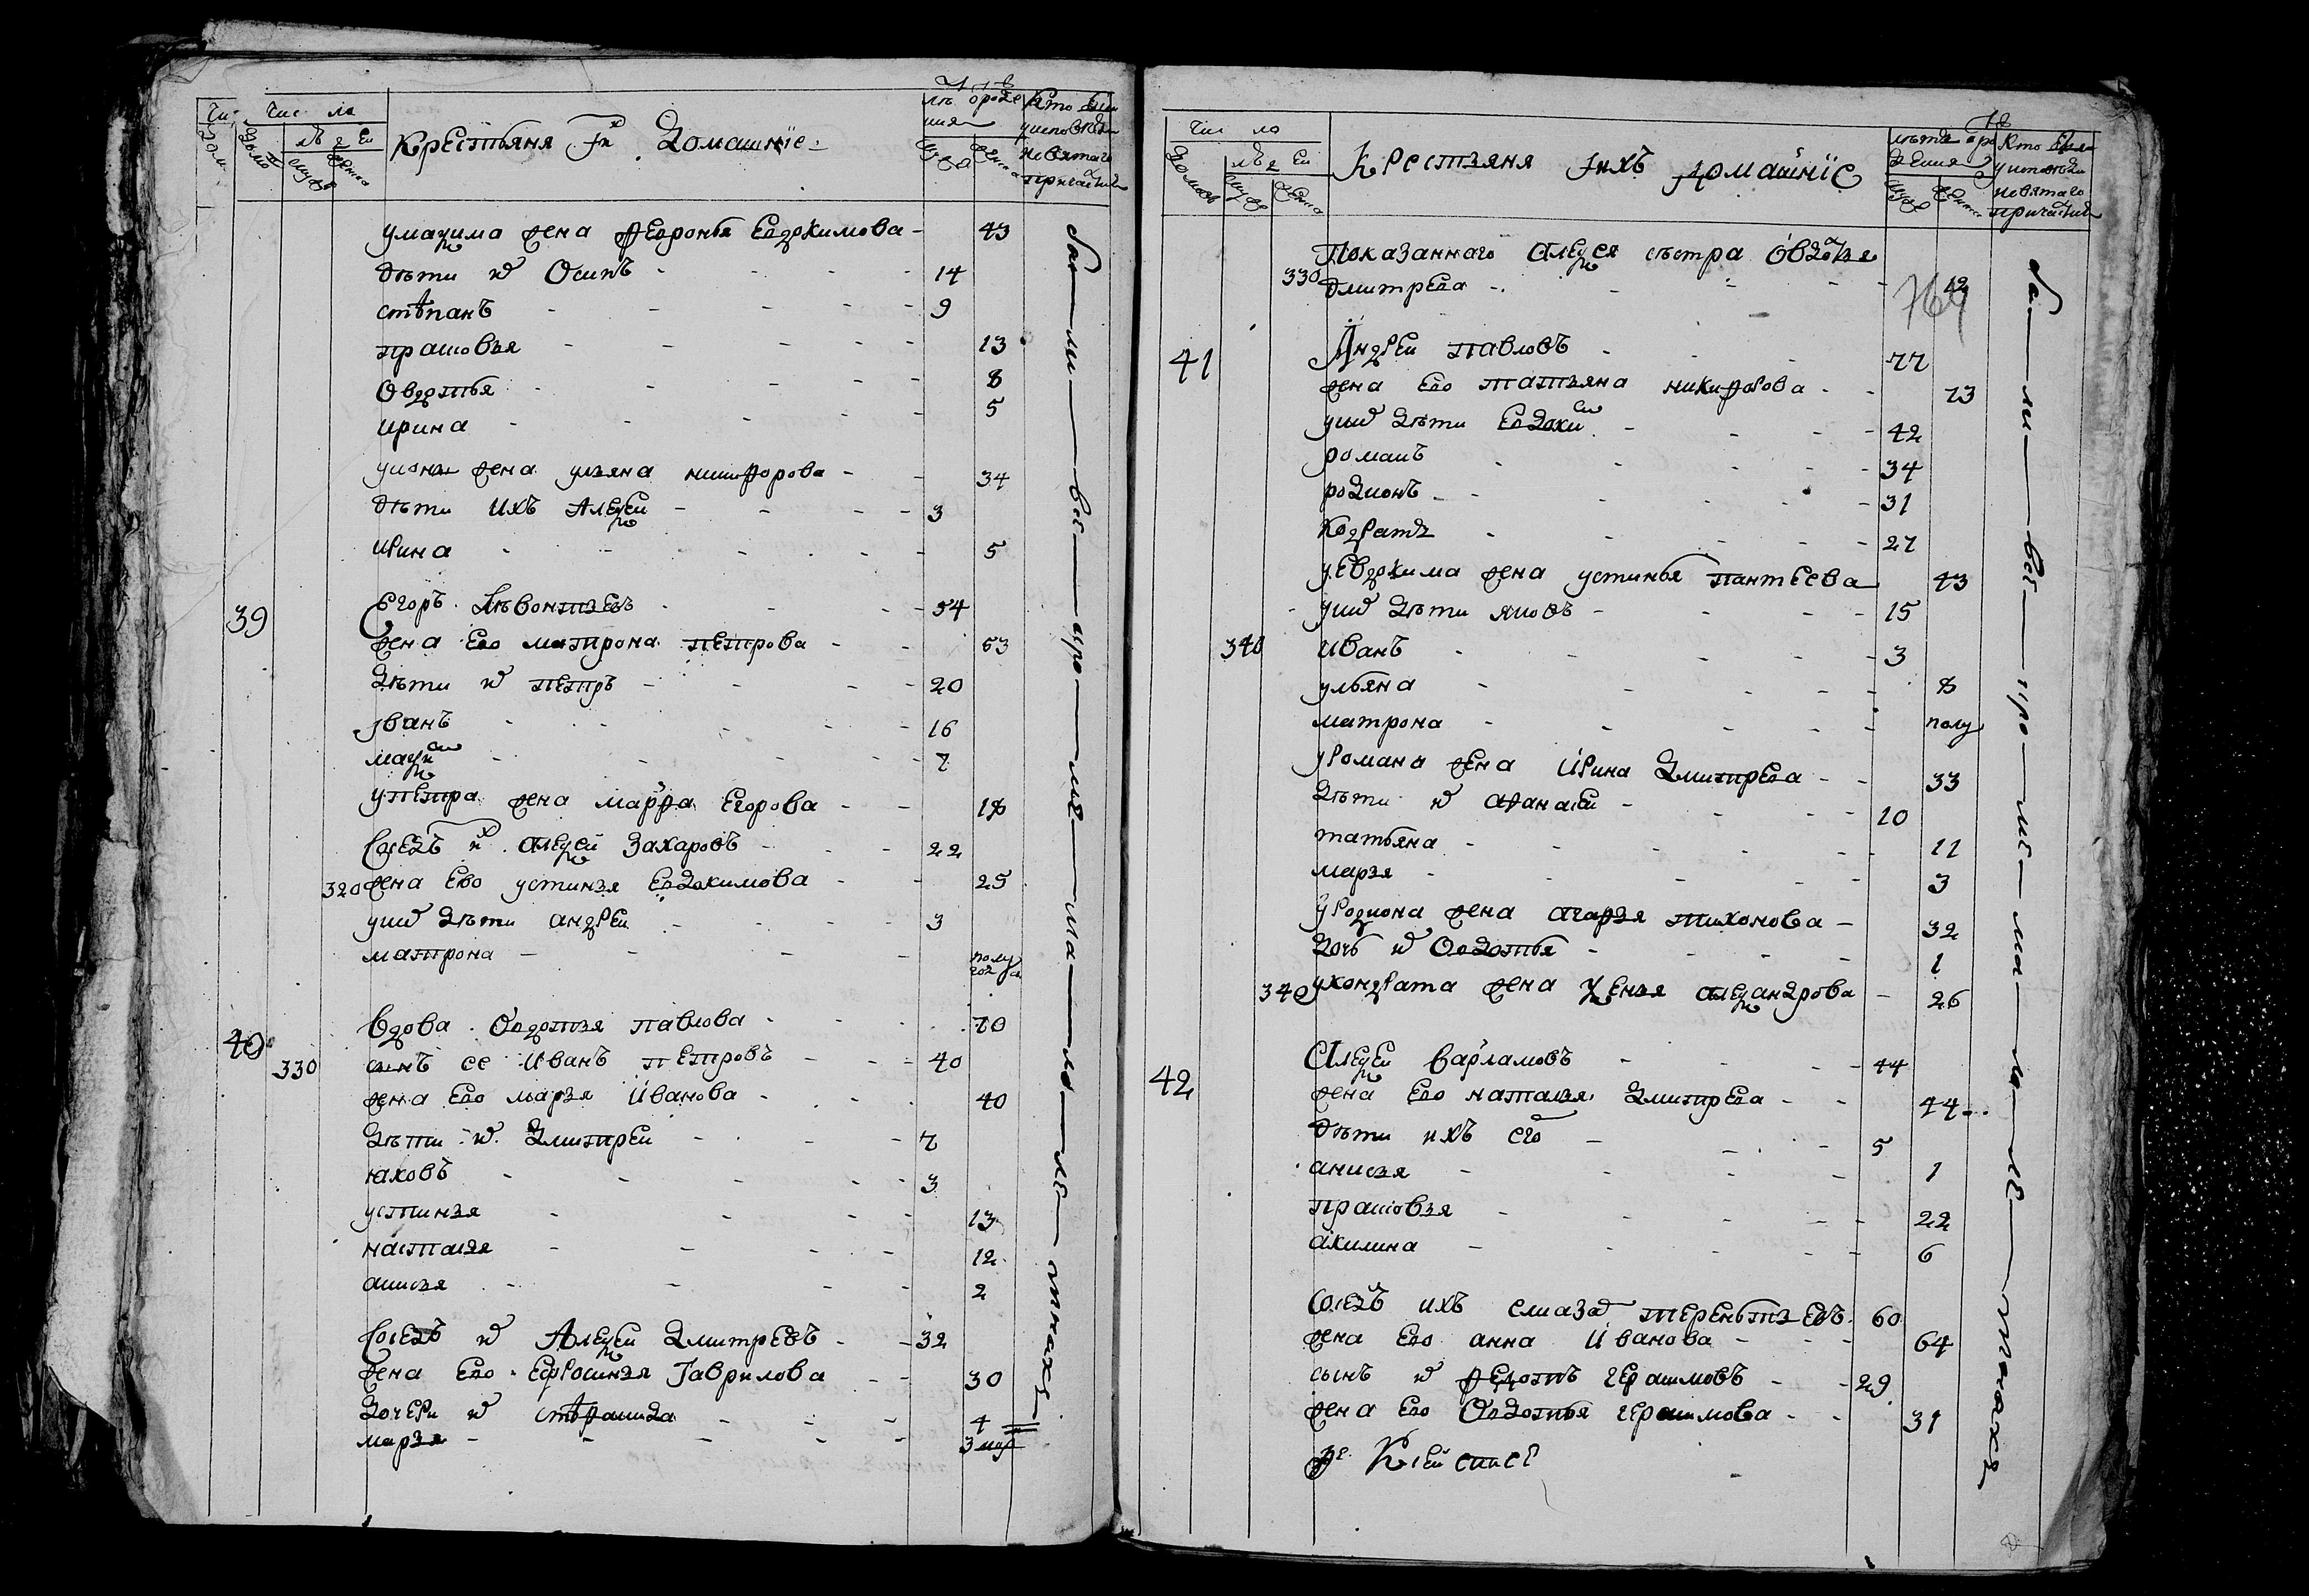 Чис ла
Крестьяня и их Домашние
лѣ от рожде
ния
Кто был
у исповеди
и святаго
причастия
у максима жена Февронья Евдокимова - 43
дѣти их Осипъ - - - - 14
стѣпанъ - - - - 9
прасковья - - - - 13
Овдотья - - - - 8
ирина - - - - 5
жена ульяна никифорова - - 34
дѣти ихъ Алексей - - - 3
ирина - - - - 5
39 Егоръ Лѣвонтьевъ - - - 54
жена Ево матрона петрова - - 53
Дѣти их петръ - - - 20
Иванъ - - - - 16
максим - - - - 7
у петра жена марфа Егорова - - 18
Соседъ их Алексей Захаровъ - - 22
320 жена Ево устинья Евдокимова - - 25
у них дѣти андрей - - - 3
матрона - - - - полу
года
40 Вдова Овдотья павлова - - 70
330 сынъ ее Иванъ петровъ - - - 40
жена Ево марья Иванова - - - 40
Дѣти их Дмитрей - - - 7
яковъ - - - - 3
устинья - - - - 13
настасья - - - - 12
анисья - - - 2
Соседъ их Алексей Дмитревъ - - 32
жена Ево Ефросинья Гаврилова - - 30
Дочери их стѣфанида - - - 4
марья - - - - 3 мес
были все а ко при ма ло ле т нах
Чис ла
домовъ
Крестьяня и ихъ домашние
лѣта от ро
ждения
Кто был
у исповеди
и святаго
причастия
Показаннаго Алексея сестра Овдотья
330 Дмитрева - - - - 12
764
41 Андрей павловъ - - - 77
жена Ево татьяна никифорова - - 73
у них Дѣти Евдоким - - - 42
романъ - - - - 34
родионъ - - - - 31
Кодратъ - - - - 27
у Евдокима жена устинья пантеева 43
у них Дѣти яковъ - - - 15
340 иванъ - - - - 3
ульяна - - - - 8
матрона - - - - полу
у Романа жена Ирина Дмитрева - - 33
Дѣти их афанасей - - - 10
татьяна - - - - 11
марья - - - - 3
у Родиона жена агафья тихонова - 32
Дочь их Овдотья - - - - 1
340 у кондрата жена Ксенья александрова - 26
42 Алексей варламовъ - - - 44
жена Ево наталья Дмитрева - - 44
дѣти ихъ - - - 5
анисья - - - - 1
прасковья - - - - 22
акилина - - - - 6
Соседъ ихъ терентьевъ 60
жена Ево анна Иванова - - - 64
сынъ их федотъ герасимовъ - - 29
жена Ево Овдотья герасимова - - 31